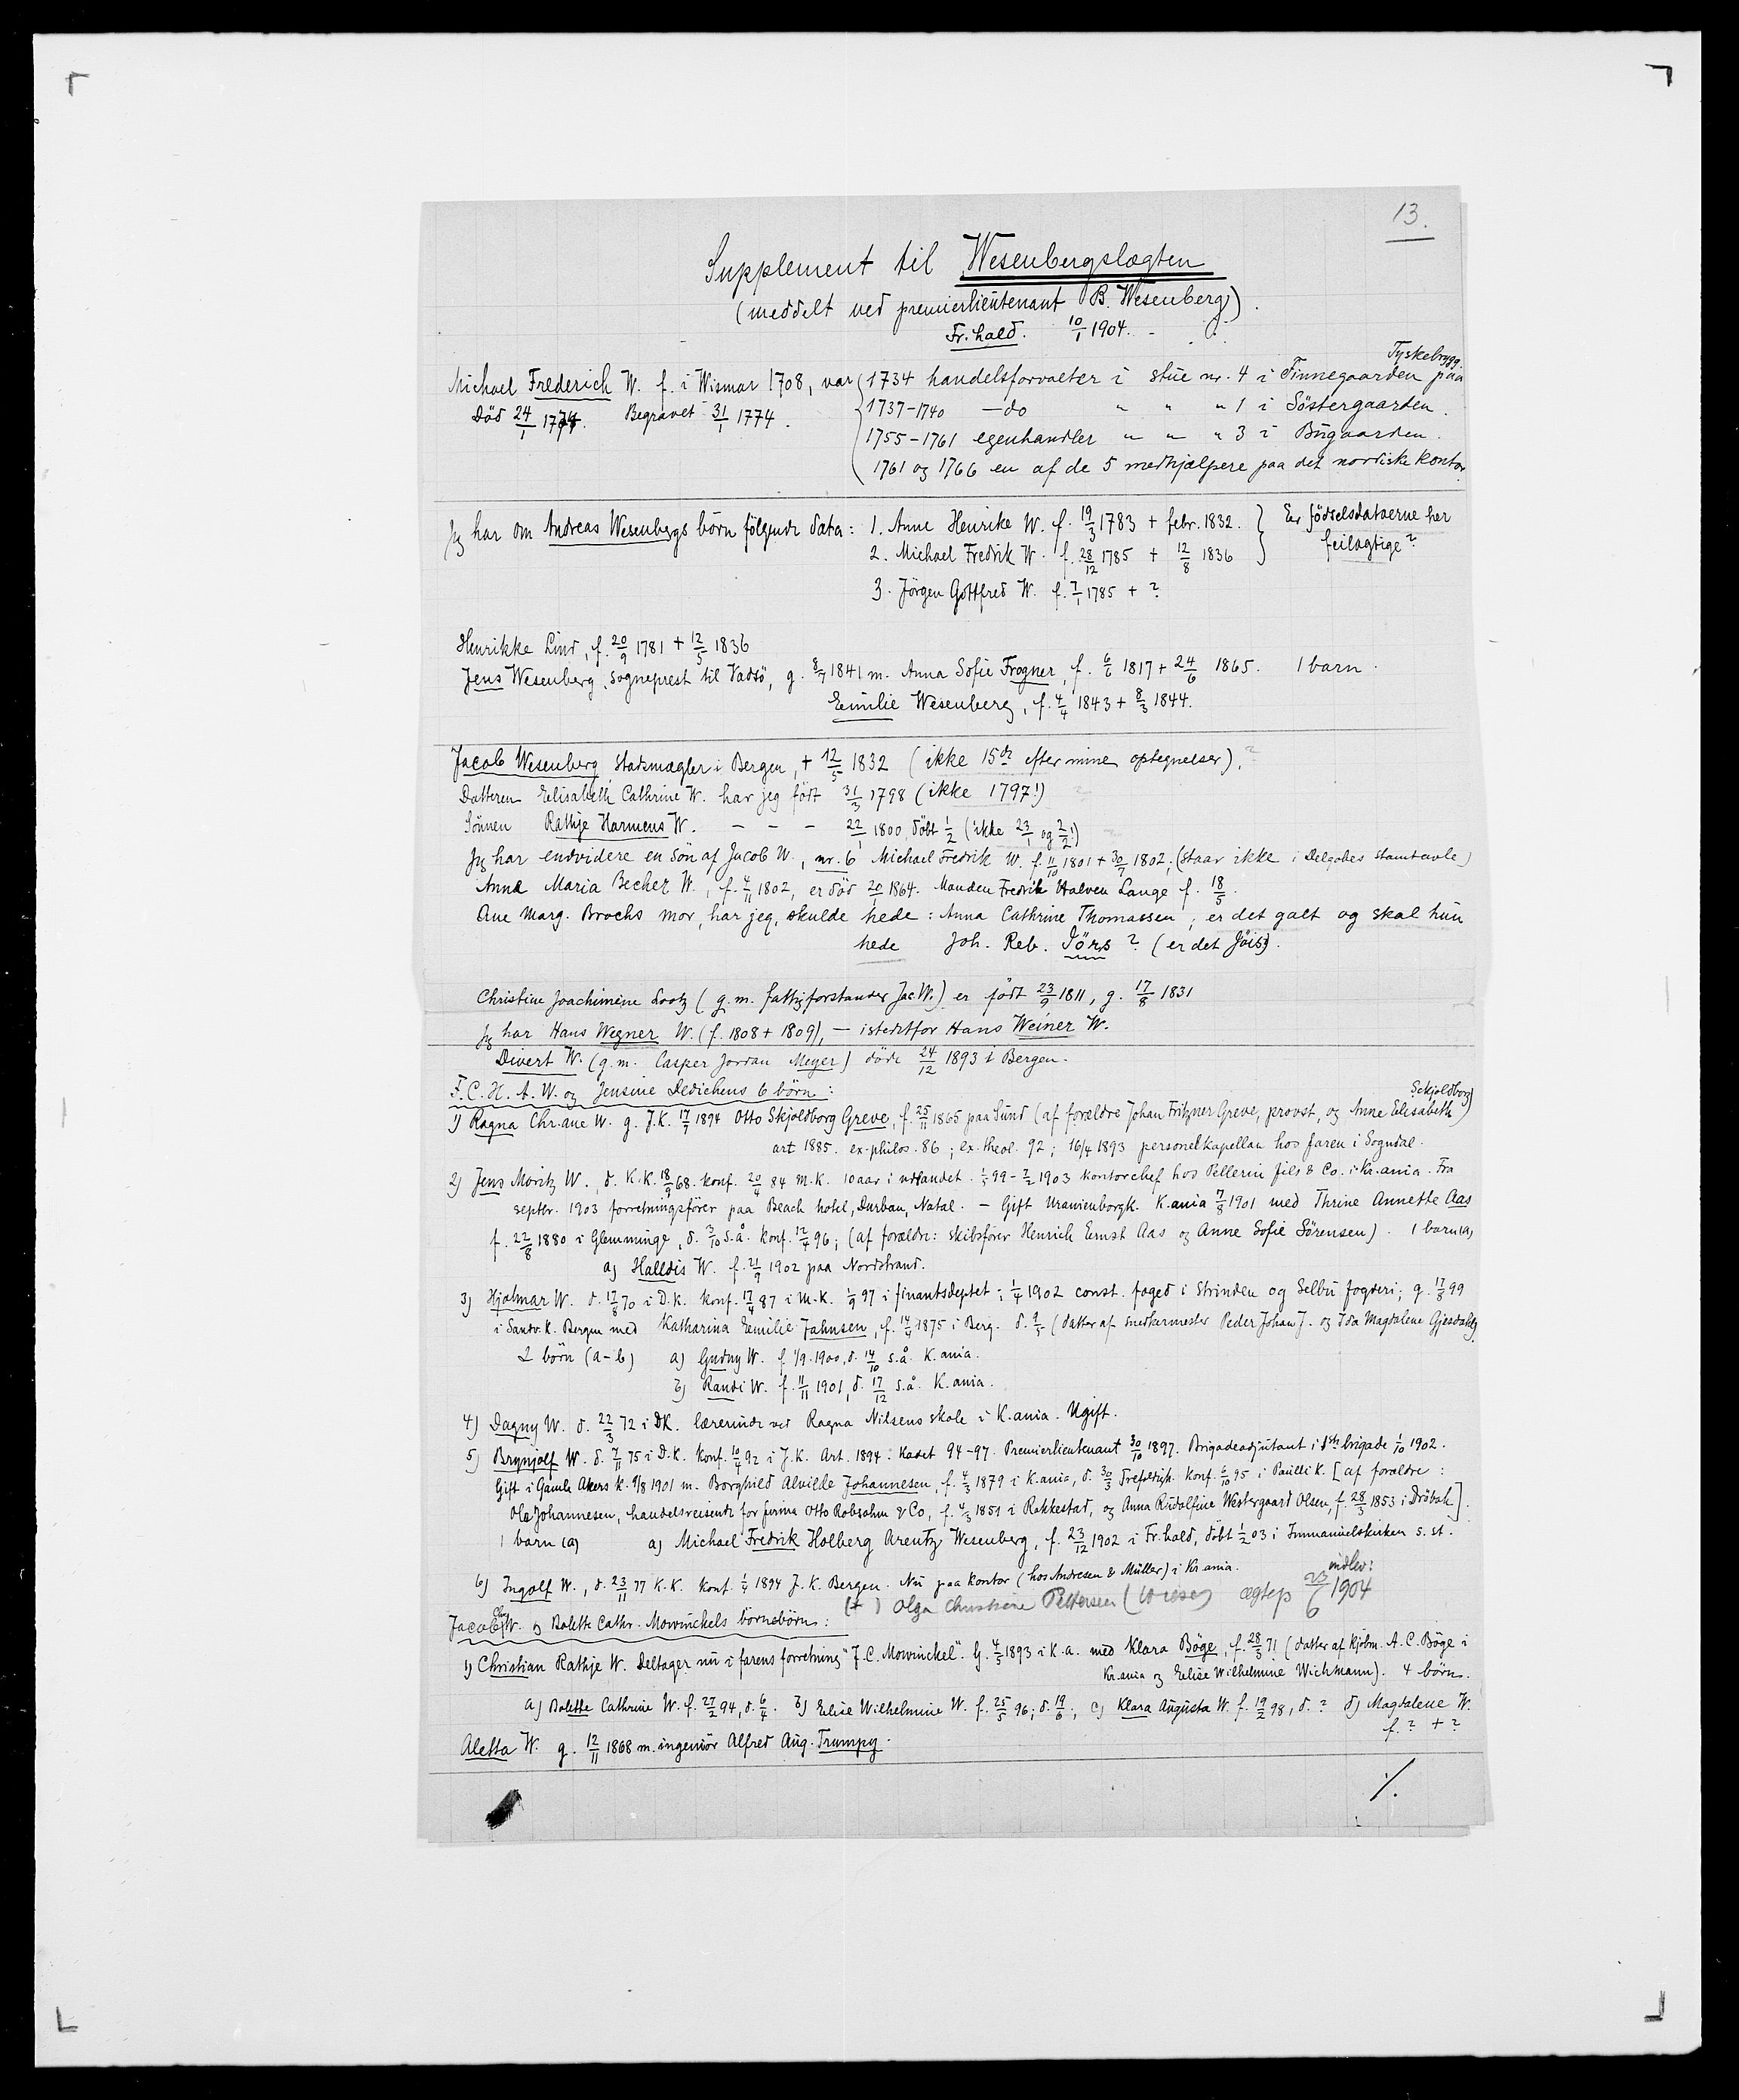 13.
Supplement til Wesenbergslægten
(meddelt ved premierlieutenant B. Wesenberg).
Fr.hald. 10/1 1904.
Tyskebrygg.
Michael Frederich W. f. i Wismar 1708, var 1734 handelsforvalter i stue nr. 4 i Finnegaarden paa
Död 24/1 1774. Begravet 31/1 1774. 1737-1740 —do „ „ „ 1 i Söstergaarden.
1755-1761 egenhandler „ „ „ 3 i Bugaarden.
1761 og 1766 en af de 5 medhjælpere paa det nordiske kontor.
Jeg har om Andreas Wesenbergs börn fölgende data: 1. Anne Henrike W. f. 19/3 1783 + febr. 1832. } Er födselsdataerne her
2. Michael Fredrik W. f. 28/12 1785 + 12/8 1836 } feilagtige?
3. Jörgen Gottfred W. f. 7/1 1785 + ?
Henrikke Lind, f. 20/9 1781 + 12/5 1836
Jens Wesenberg, sogneprest til Vadsö, g. 8/7 1841 m. Anna Sofie Frogner, f. 6/6 1817 + 24/6 1865. 1 barn.
Emilie Wesenberg, f. 4/4 1843 + 8/3 1844.
Jacob Wesenberg, stadsmægler i Bergen, + 12/5 1832 (ikke 15de efter mine optegnelser). ?
Datteren Elisabeth Cathrine W. har jeg födt 31/3 1798 (ikke 1797!)
Sönnen Rathje Harmens W. — — — 22/1 1800, döbt 1/2 (ikke 23/1 og 2/2!)
Jeg har endvidere en sön af Jacob W., nr. 6 Michael Fredrik W. f. 11/10 1801 + 30/7 1802; (staar ikke i Delgobes stamtavle)
Anna Maria Becher W., f. 4/11 1802, er död 20/1 1864. Manden Fredrik Halven Lange f. 18/5.
Ane Marg. Brochs mor, har jeg, skulde hede: Anna Cathrine Thomassen; er det galt og skal hun
hede Joh. Reb. Jörs? (er det Jöis?).
Christine Joachimine Lootz (g. m. fattigforstander Jac W.) er födt 23/9 1811, g. 17/8 1831
Jeg har Hans Wegner W. (f. 1808 + 1809), — istedetfor Hans Weiner W.
Divert W. (g. m. Casper Jordan Meyer) döde 24/12 1893 i Bergen.
F. C. H. A. W. og Jensine Dedichens 6 börn:
Sckjoldborg)
1) Ragna Chr.ane W. g. J.K. 17/7 1894 Otto Skjoldborg Greve, f. 25/11 1865 paa Sund (af forældre Johan Fritzner Greve, provst, og Anne Elisabeth
art 1885. ex. philos. 86; ex. theol. 92; 16/4 1893 personelkapellan hos faren i Sogndal.
2) Jens Moritz W., d. K.K. 18/9 68. konf. 20/4 84 M.K. 10 aar i udlandet. 1/5 99 - 7/2 1903 kontorchef hos Pellerin fils & Co. i Kr.ania. Fra
septbr. 1903 forretningsförer paa Beach hotel, Durban, Natal. — Gift Uranienborgk. K.ania 7/8 1901 med Thrine Annette Aas
f. 22/8 1880 i Glemminge, d. 3/10 s.å. konf. 12/4 96; (af forældre: skibsförer Henrich Ernst Aas og Anne Sofie Sörensen). 1 barn (a)
a) Halldis W. f. 21/9 1902 paa Nordstrand.
3) Hjalmar W. d. 17/8 70 i D.K. konf. 17/4 87 i M.K. 1/9 97 i finantsdeptet; 1/4 1902 const. foged i Strinden og Selbu fogderi; g. 17/8 99
i Sandv.k. Bergen med Katharina Emilie Jahnsen, f. 14/4 1875 i Berg. d. 9/5 (datter af snedkermester Peder Johan J. og Ida Magdalene Gjesdahl).
2 börn (a-b) a) Gudny W. f. 1/9.1900, d. 14/10 s.å. K.ania.
b) Randi W. f. 11/11 1901, d. 17/12 s.å. K.ania.
4) Dagny W. d. 22/3 72 i DK. lærerinde ved Ragna Nilsens skole i K.ania. Ugift.
5) Brynjolf W. d. 7/11 75 i D.K. konf. 10/4 92 i J.K. Art. 1894. Kadet 94-97. Premierlieutenant 30/10 1897. Brigadeadjutant i 1ste brigade 1/10 1902.
Gift i Gamle Akers k. 9/8 1901 m. Borghild Alvilde Johannesen, f. 4/2 1879 i K.ania, d. 30/3 Trefoldigh. konf. 6/10 95 i Paulli K. [af forældre:
Ole Johannesen, handelsreisende for firma Otto Robsahm & Co, f. 4/3 1851 i Rakkestad, og Anna Rudolfine Westergaard Olsen, f. 28/3 1853 i Dröbak].
1 barn (a) a) Michael Fredrik Holberg Arentz Wesenberg, f. 23/12 1902 i Fr.hald, döbt 1/2 03 i Immanuelskirken s. st.
6) Ingolf W., d. 23/11 77 K.K. konf. 1/4 1894 J.K. Bergen. Nu paa kontor (hos Andresen & Müller) i Kr.ania.
(+ ) Olga Christine Pettersen (Wiese) ægtep indlev: 23/6 1904
Jacob Chr. W. og Bolette Cathr. Mowinckels börnebörn:
1) Christian Rathje W. Deltager nu i farens forretning "J. C. Mowinckel". G. 4/5 1893 i K.a. med Klara Böge, f. 28/3 71 (datter af kjöbm. A. C. Böge i
Kr.ania og Elise Wilhelmine Wichmann). 4 börn.
a) Bolette Cathrine W. f. 27/2 94, d. 6/4. b) Elise Wilhelmine W. f. 25/5 96; d. 19/6., c) Klara Augusta W. f. 19/2 98, d. ? d) Magdalene W.
f. ? + ?
Aletta W. g. 12/11 1868 m. ingeniör Alfred Aug. Trumpy.
./.